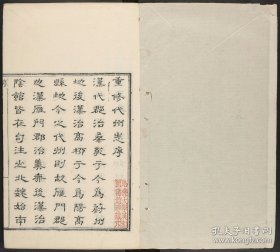 重修代州志序
漢代郡治桑乾于今爲蔚州
地後漢治高柳于今爲陽高
縣地今之代州則故雁門郡
也漢雁門郡治善無後漢治
陰館皆在句注之北魏始南